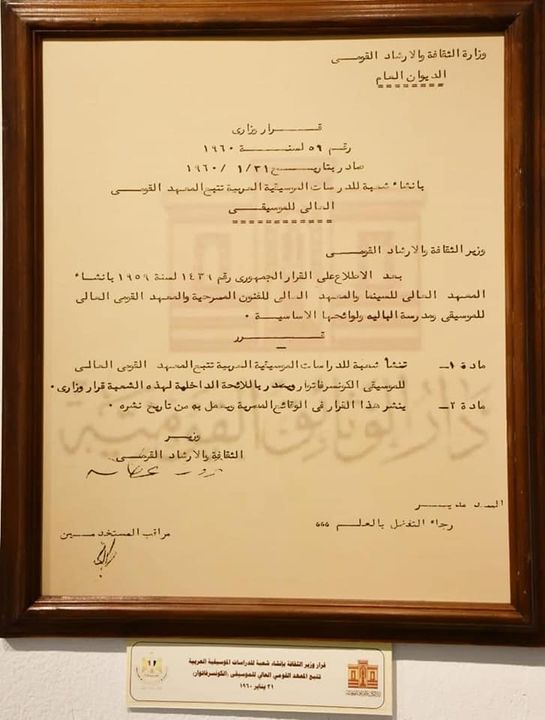 وزارة الثقافة والارشاد القومى
الديوان العام
قرار وزارى
رقم ٥٩ لسنة ١٩٦٠
صادر بتاريخ ١/٣١ /١٩٦٠
بانشاء شعبة للدراسات الموسيقية العربية تتبع المعهد القومى
العالى للموسيقى
وزير الثقافة والارشاد القومى
بعد الاطلاع على القرار الجمهورى رقم ١٤٣٩ لسنة ١٩٥٩ بانشاء
المعهد العالى للسينما والمعهد العالى للفنون المسرحية والمعهد القومى العالى
للموسيقى ومدرسة الباليه ولوائحها الاساسية ٠
قرر
مادة ١ــ تنشأ شعبة للدراسات الموسيقية العربية تتبع المعهد القومى العالى
للموسيقى الكونسرفاتوار ويصدر باللائحة الداخلية لهذه الشعبة قرار وزارى ٠
مادة ٢ــ ينشر هذا القرار فى الوقائع المصرية ويعمل به من تاريخ نشره ٠
دار الوثائق القومية
وزير
الثقافة والارشاد القومى
السيد مدير
رجاء التفضل بالعلم ،،،
مراقب المستخدمين
قرار وزير الثقافة بإنشاء شعبة للدراسات الموسيقية العربية
تتبع المعهد القومى العالى للموسيقى (الكونسرفاتوار)
٣١ يناير ١٩٦٠